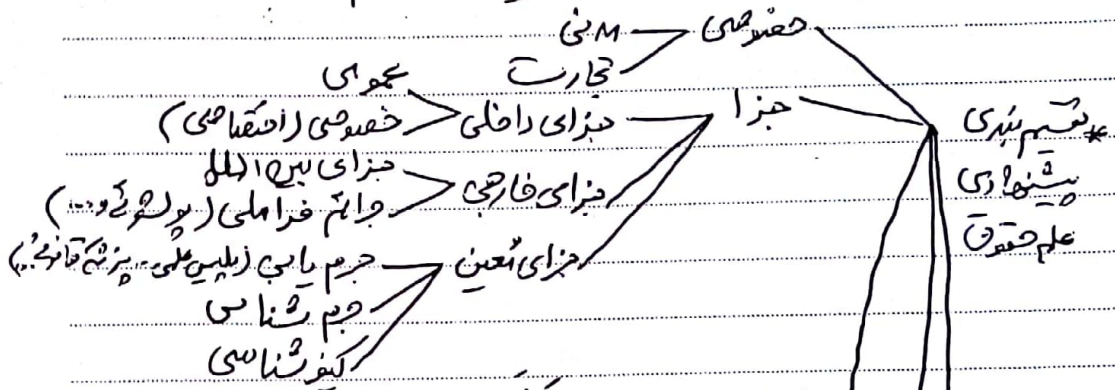 * تقسیم بندی
پیشنهادی
علم حقوق
خصوصی
مدنی
تجارت
جزا
جزای داخلی
عمومی
خصوصی (اختصاصی)
جزای خارجی
جزای بین الملل
جرائم فراملی (پولشوئی و...)
جزای مُعین
جرم یابی (پلیس علمی.. پزشکی قانونی..)
جرم شناسی
کیفرشناسی